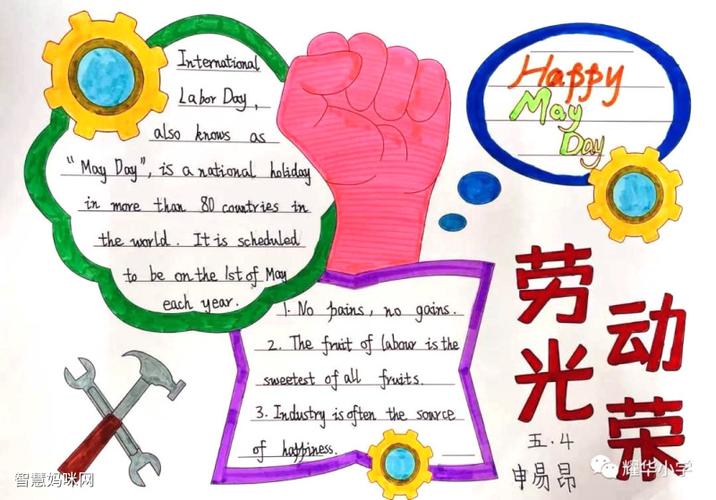 International
Labor Day,
also knows as
"May Day", is a national holiday
in more than 80 countries in
the world. It is scheduled
to be on the 1st of May
each year.
Happy
May
Day
1. No pains, no gains.
2. The fruit of labour is the
sweetest of all fruits.
3. Industry is often the source
of happiness.
劳动
光荣
五.4
申易昂
智慧妈咪网
耀华小学